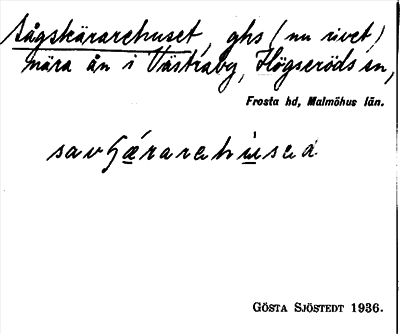 Sågskärarehuset, ghs (nu rivet)
nära ån i Västraby, Högseröds sn,
Frosta hd, Malmöhus län.
savʃæ̱rarehu̱sed
GÖSTA SJÖSTEDT 1936.